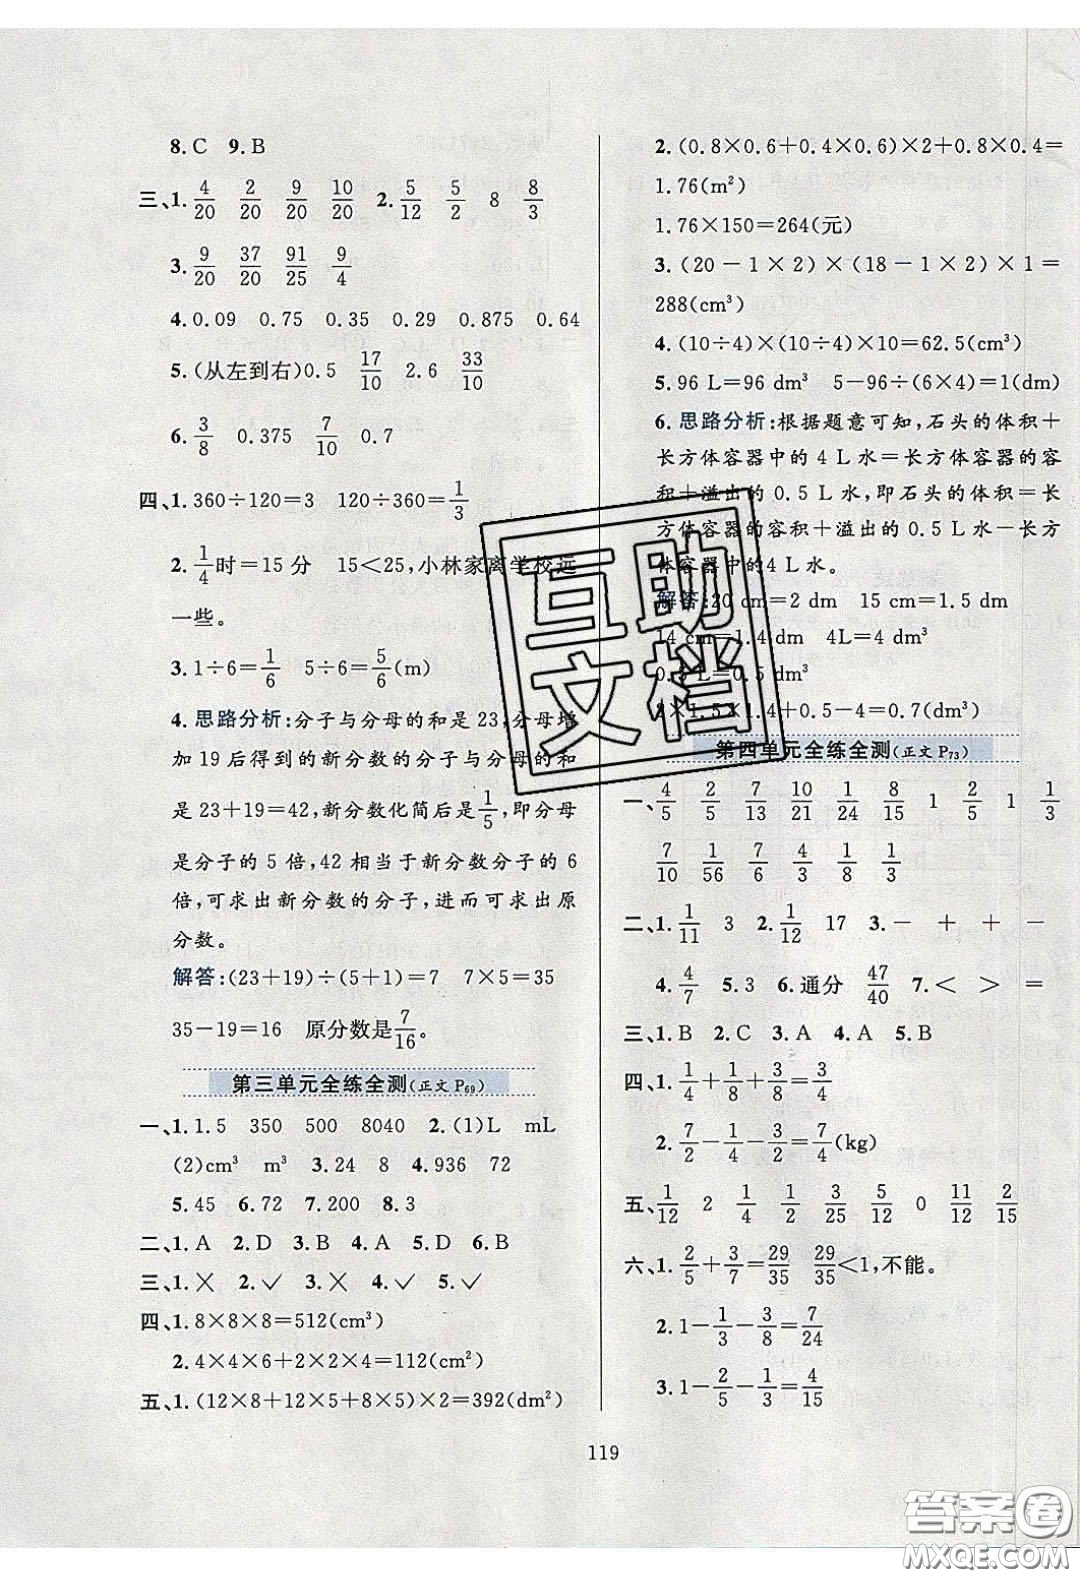 8.C 9.B
三、1. 4/20 2/20 9/20 10/20 2. 5/12 5/2 8 8/3
3. 9/20 37/20 91/25 9/4
4.0.09 0.75 0.35 0.29 0.875 0.64
5.(从左到右)0.5 17/10 2.6 33/10
6. 3/8 0.375 7/10 0.7
四、1.360÷120=3 120÷360=1/3
2. 1/4时=15分 15<25,小林家离学校远
一些。
3.1÷6=1/6 5÷6=5/6(m)
4.思路分析:分子与分母的和是23,分母增
加19后得到的新分数的分子与分母的和
是23+19=42,新分数化简后是1/5,即分母
是分子的5倍,42相当于新分数分子的6
倍,可求出新分数的分子,进而可求出原
分数。
解答:(23+19)÷(5+1)=7 7×5=35
35-19=16 原分数是7/16。
第三单元全练全测(正文P69)
一、1.1.5 350 500 8040 2.(1)L mL
(2)cm³ m³ 3.24 8 4.936 72
5.45 6.72 7.200 8.3
二、1.A 2.D 3.B 4.A 5.D 6.B
三、1.× 2.✓ 3.× 4.✓ 5.✓
四、1.8×8×8=512(cm³)
2.4×4×6+2×2×4=112(cm²)
五、1.(12×8+12×5+8×5)×2=392(dm²)
2.(0.8×0.6+0.4×0.6)×2+0.8×0.4=
1.76(m²)
1.76×150=264(元)
3.(20-1×2)×(18-1×2)×1=
288(cm³)
4.(10÷4)×(10÷4)×10=62.5(cm³)
5.96 L=96 dm³ 5-96÷(6×4)=1(dm)
6.思路分析:根据题意可知,石头的体积+
长方体容器中的4 L水=长方体容器的容
积+溢出的0.5 L水,即石头的体积=长
方体容器的容积+溢出的0.5 L水-长方
体容器中的4 L水。
解答:20 cm=2 dm 15 cm=1.5 dm
14 cm=1.4 dm 4L=4 dm³
0.5 L=0.5 dm³
2×1.5×1.4+0.5-4=0.7(dm³)
第四单元全练全测(正文P73)
一、4/5 2/5 7/13 10/21 1/24 8/15 1 2/5 1 1/3
7/10 1/56 7/6 4/3 1/8 1/3
二、1. 1/11 3 2. 1/12 17 3.- + + -
4. 4/7 5.3 6.通分 47/40 7.< > =
三、1.B 2.C 3.A 4.A 5.B
四、1. 1/4+1/8+3/8=3/4
2. 7/2-1/4-3/2=7/4(kg)
五、1/12 2 1/4 1/2 3/25 5/12 0 11/12 2/15
六、1. 2/5+3/7=29/35 29/35<1,不能。
2.1-1/3-3/8=7/24
3.1-2/5-1/3=4/15
119
互助
文档
答案圈
MXQE.COM